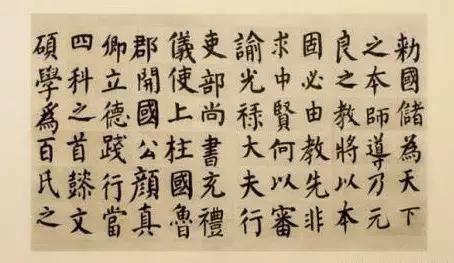 勅國儲為天下
之本師導乃元
良之教將以本
固必由教先非
求中賢何以審
諭光祿大夫行
吏部尚書充禮
儀使上柱國魯
郡開國公顏真
卿立德踐行當
四科之首懿文
碩學為百氏之